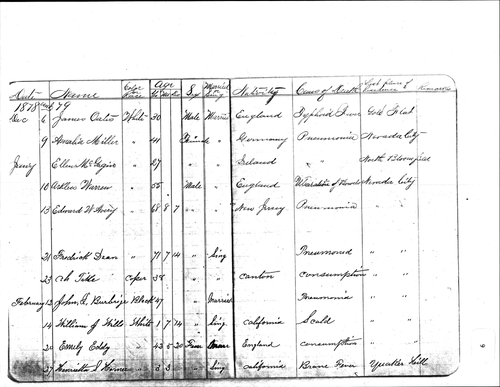 Date Name Color Age Sex Married or Sing Nativity Cause of Death Last place of Residence Remarks
1878 and 79
Dec 6 James Oates White 30 Male Married England Typhoid Fever Gold Flat
9 Amelia Miller " 41 Female " Germany Pneumonia Nevada City
Jany Ellen " 27 " " Ireland " North Bloomfield
10 Warren " 55 Male " England Nevada City
13 Edward W " 68 8 7 " " New Jersey Pneumonia
21 Fredrick Dean " 71 7 14 " Sing Pneumonia " "
23 Ah Title 38 " " Canton consumption " "
February 13 John S. Black 47 " Married Pneumonia " "
14 William J Wills White 1 7 14 " Sing California Scald " "
20 Emily Eddy " 43 5 20 England consumption " "
27 Henrietta J " 3 3 " Sing California Fever Quaker Hill